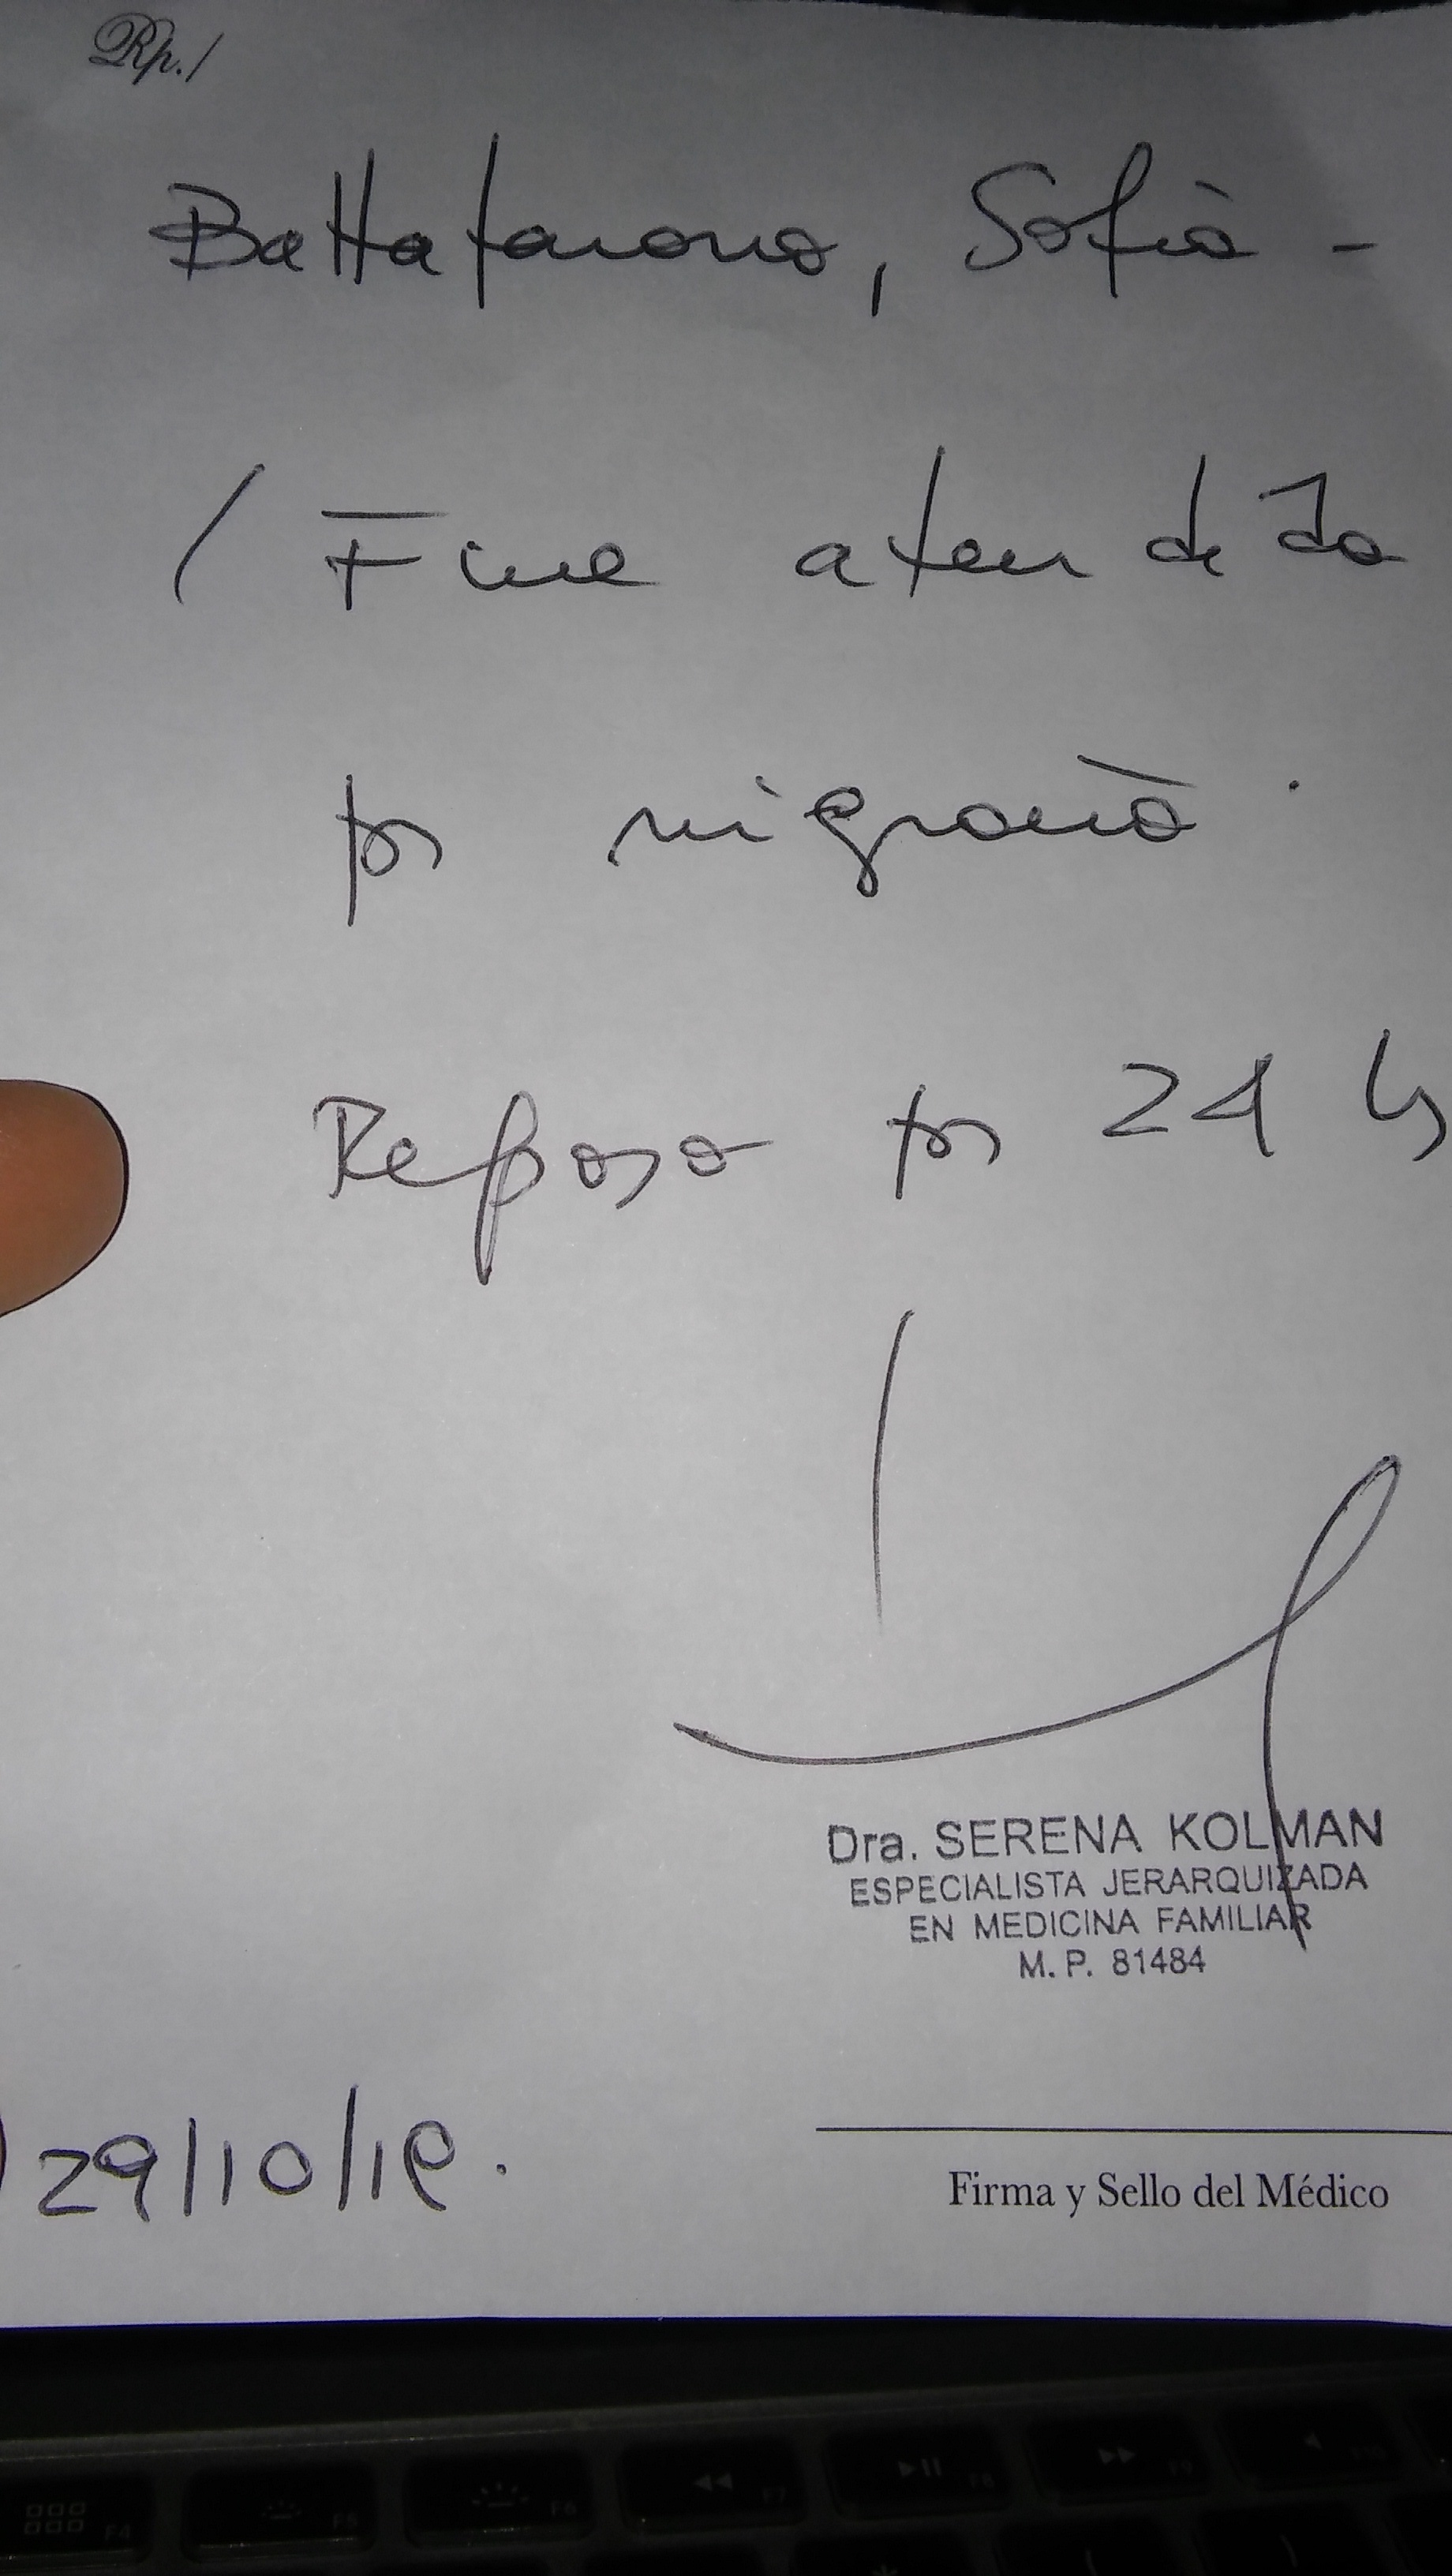 Rp./
Battafarano, Sofía -
/ Fue atendida
por migraña.
Reposo por 24 hs
Dra. SERENA KOLMAN
ESPECIALISTA JERARQUIZADA
EN MEDICINA FAMILIAR
M. P. 81484
29/10/19.
Firma y Sello del Médico
F4 F5 F6 F7 F8 F9 F10